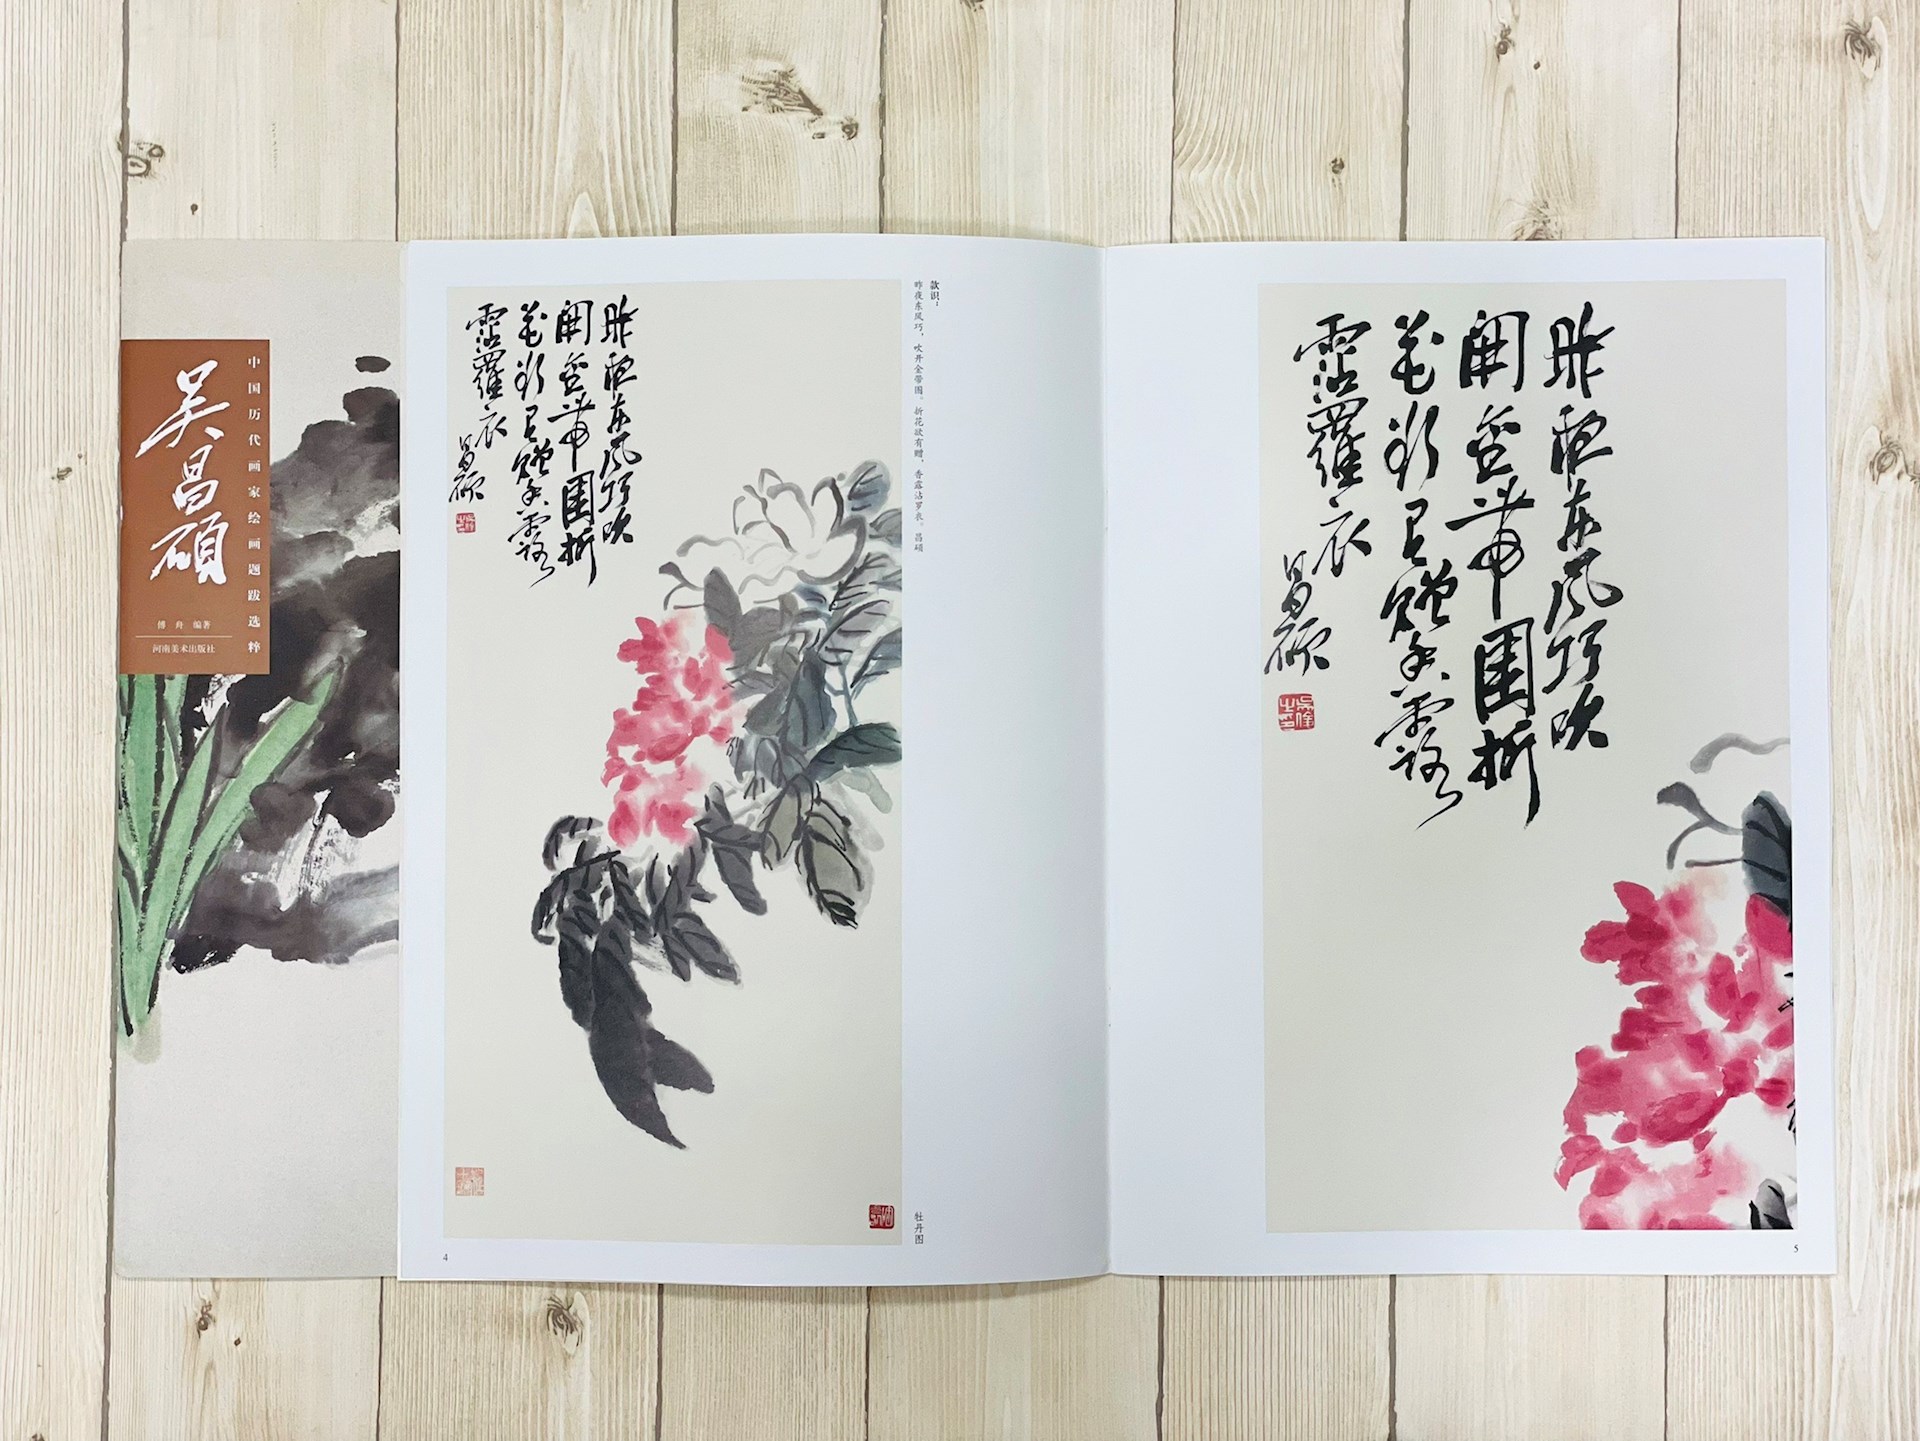 中国历代画家绘画题跋选粹
吴昌碩
傅舟 编著
河南美术出版社
款识：
昨夜东风巧，吹开金带围。折花欲有赠，香露沾罗衣。昌硕
昨夜東風巧吹
開金帶圍折
花欲有贈香露
霑羅衣
昌碩
牡丹图
4
昨夜東風巧吹
開金帶圍折
花欲有贈香露
霑羅衣
昌碩
5